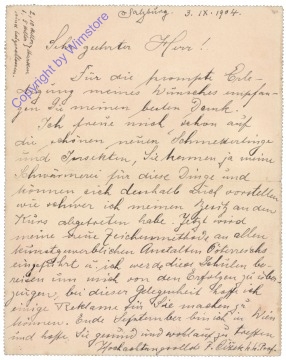 Salzburg 3. IX. 1904.
Sehr geehrter Herr!
Für die prompte Erle-
digung meines Wunsches empfan-
gen Sie meinen besten Dank.
Ich freue mich schon auf
die schönen, neuen Schmetterlinge
und Insekten, Sie kennen ja meine
Schwärmerei für diese Dinge und
können sich deshalb vorstellen
wie schwer ich meinen
Kurs abgehalten habe. Jetzt wird
meine neue Zeichenmethode an allen
kunstgewerblichen Anstalten Österreichs
eingeführt u. ich werde diese Schulen be-
reisen um mich von den Erfolgen zu über-
zeugen, bei dieser Gelegenheit hoffe ich
einige Reklame für Sie machen zu
können. Ende September bin ich in Wien
und hoffe Sie gesund und wohlauf zu treffen
Hochachtungsvollst F. Cižek k. k. Prof.
Winstore